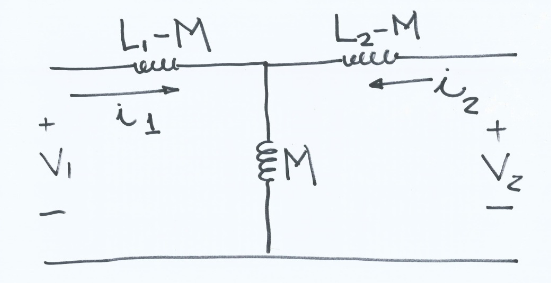 L₁-M
L₂-M
i₁
i₂
+
V₁
-
M
+
V₂
-